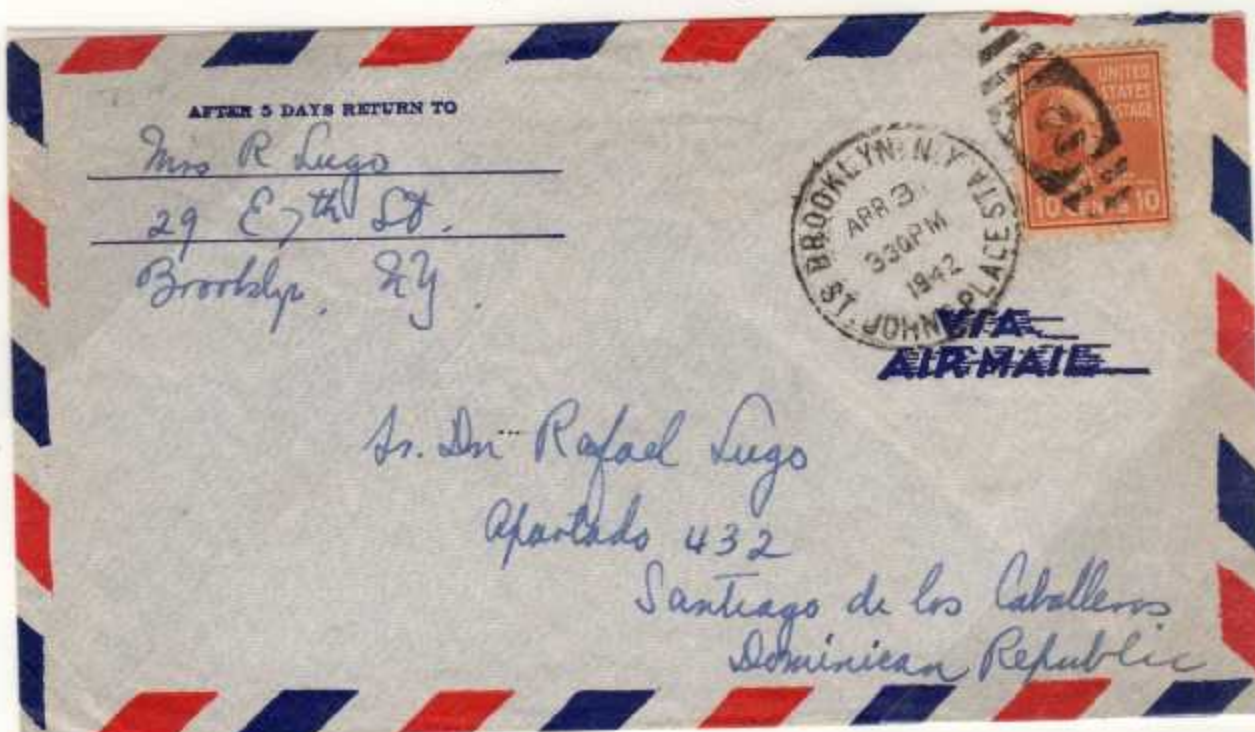 AFTER 5 DAYS RETURN TO
Mrs R Lugo
29 E 7th St.
Brooklyn, NY.
BROOKLYN, N.Y.
ST. JOHNS PLACE STA
APR 3
330PM
1942
UNITED
STATES
POSTAGE
10 CENTS 10
VIA
AIR MAIL
Sr. Dn Rafael Lugo
Apartado 432
Santiago de los Caballeros
Dominican Republic